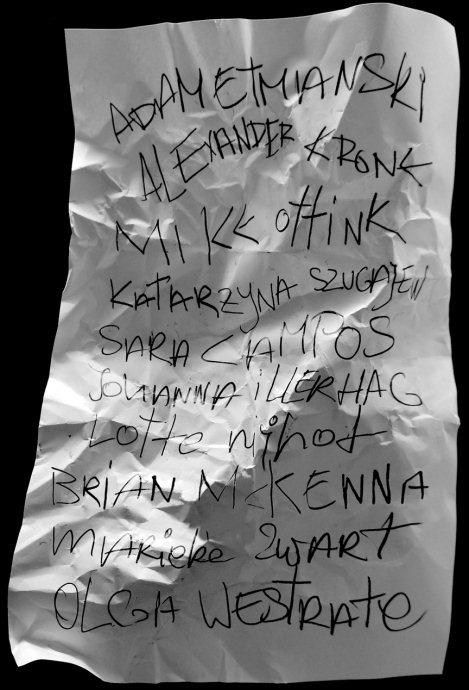 ADAM ETMIANSKI
ALEXANDER KRONE
MIKE OTTINK
KATARZYNA SZUGAJEW
SARA CAMPOS
JOHANNA ILLERHAG
Lotte nijhof
BRIAN McKENNA
MARieke ZWART
OLGA WESTRATe